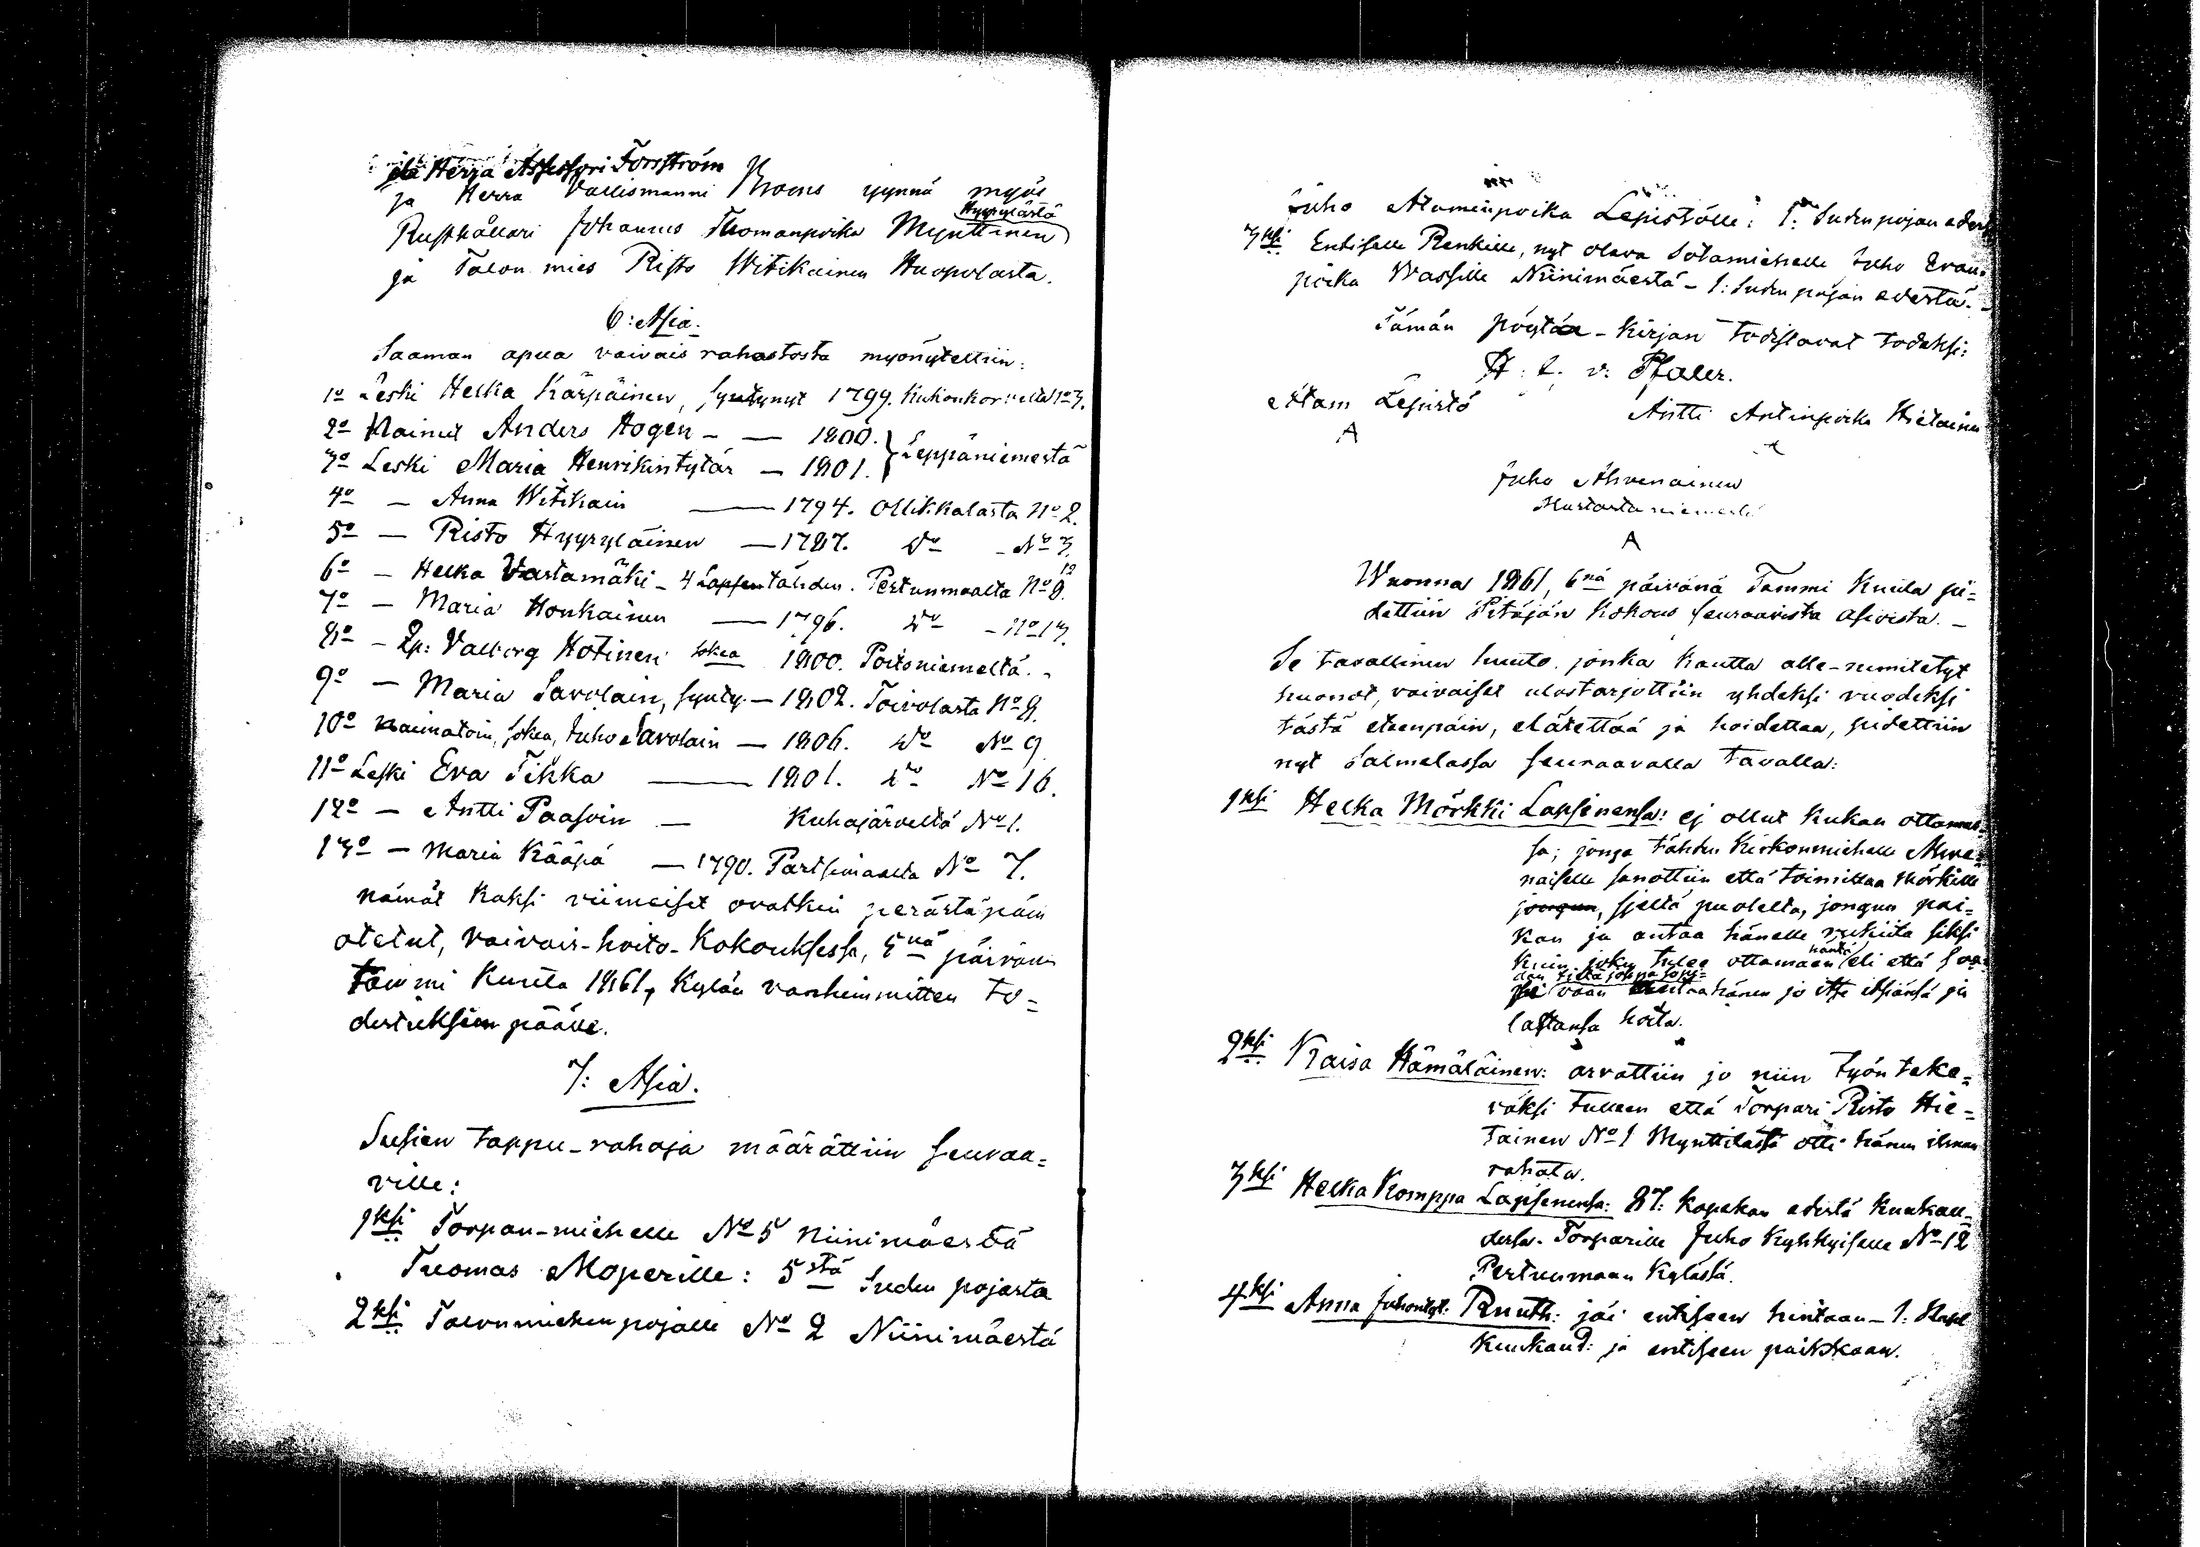 ja Herra Assessori Forsström
ja Herra Vallesmanni Kroms ynnä myös
Hyyrylästä
Rusthållari Johannes Thomanpoika Mynttinen
ja Talon mies Risto Witikainen Huopolasta.
6: Asia.
Saaman apua vaivais rahastosta myönyteltiin:
1o Leski Helka Kärpäinen, syntynyt 1799. Kukonkorvelta No 3.
2o Nainut Anders Hogen – — 1800.
3o Leski Maria Henrikintytär – 1801. } Leppäniemestä
4o – Anna Witikain — 1794. Ollikkalasta No 2.
5o – Risto Hyyryläinen – 1787. Do – No 3.
12
6o – Helka Vastamäki – 4 Lapsen tähden. Pertunmaalta No 9.
7o – Maria Honkainen — 1796. Do – No 13.
8o – Lp: Valborg Hotinen sokea 1800. Poitsniemeltä. –
9o – Maria Savolain, synty. – 1802. Toivolasta No 8.
10o naimatoin, sokea, Juho Savolain – 1806. Do No 9
11o Leski Eva Tikka — 1801. Do No 16.
12o – Antti Paasoin – Kuhajärveltä No 1.
13o – Maria Kääpä – 1790. Partsimaalta No 7.
nämät kaksi viimeiset ovatkin perästäpäin
otetut, vaivais-hoito-kokouksessa, 5nä päivänä
Tammi kuuta 1861, Kylän vanhemmitten to=
distuksien päälle.
7: Asia.
Susien tappu-rahoja määrättiin seuraa=
ville:
1ksi Torpan-miehelle No 5 Niinimäestä
Tuomas Moperille: 5stä Suden pojasta
2ksi Talonmiehen pojalle No 2 Niinimäestä
Juho Ataminpoika Lepistölle: 1: Suden pojan edest
3ksi Entiselle Renkille, nyt oleva Sotamiehelle Juho Evan
poika Wassille Niinimäestä – 1: Suden pojan edestä. –
Tämän pöytä-kirjan todistavat todeksi:
A: L: v: Pfaler.
Atam Lepistö
Antti Antinpoika Hietainen
A
Juho Ahvenainen
Hartosta niemestä
A
Wuonna 1861, 6nä päivänä Tammi kuuta pi=
dettiin Pitäjän kokous seuraavista asioista. –
Se tavallinen huuto, jonka kautta alle-nimitetyt
huonot, vaivaiset ulostarjottiin yhdeksi vuodeksi
tästä etenpäin, elätettää ja hoidettaa, pidettiin
nyt Salmelassa seuraavalla tavalla:
1ksi Helka Mörkki Lapsinensa: ej ollut kukan ottamas=
sa; jonga tähden Kirkonmiehelle Ahve=
naiselle sanottiin että toimittaa Mörkille
jongun, sieltä puolelta, jongun pai=
kan ja antaa hänelle rukiita siksi
häntä
kuin joku tulee ottamaan eli että saa=
vaan hänen jo itse Asiansa ja
lastansa hoita.
2ksi Kaisa Hämäläinen: arvattiin jo niin työn teke=
väksi tulleen että Torpari Risto Hie=
tainen No 1 Mynttilästä otti hänen ilman
rahata.
3ksi Helka Komppa Lapsinensa: 87: kopekan edestä kuukau=
desta. Torparille Juho Kyhkyiselle No 12
Pertunmaan Kylässä.
4ksi Anna Juhontyt: Ruuth: jäi entiseen hintaan – 1: Rupl
kuukaud: ja entiseen paikkaan.